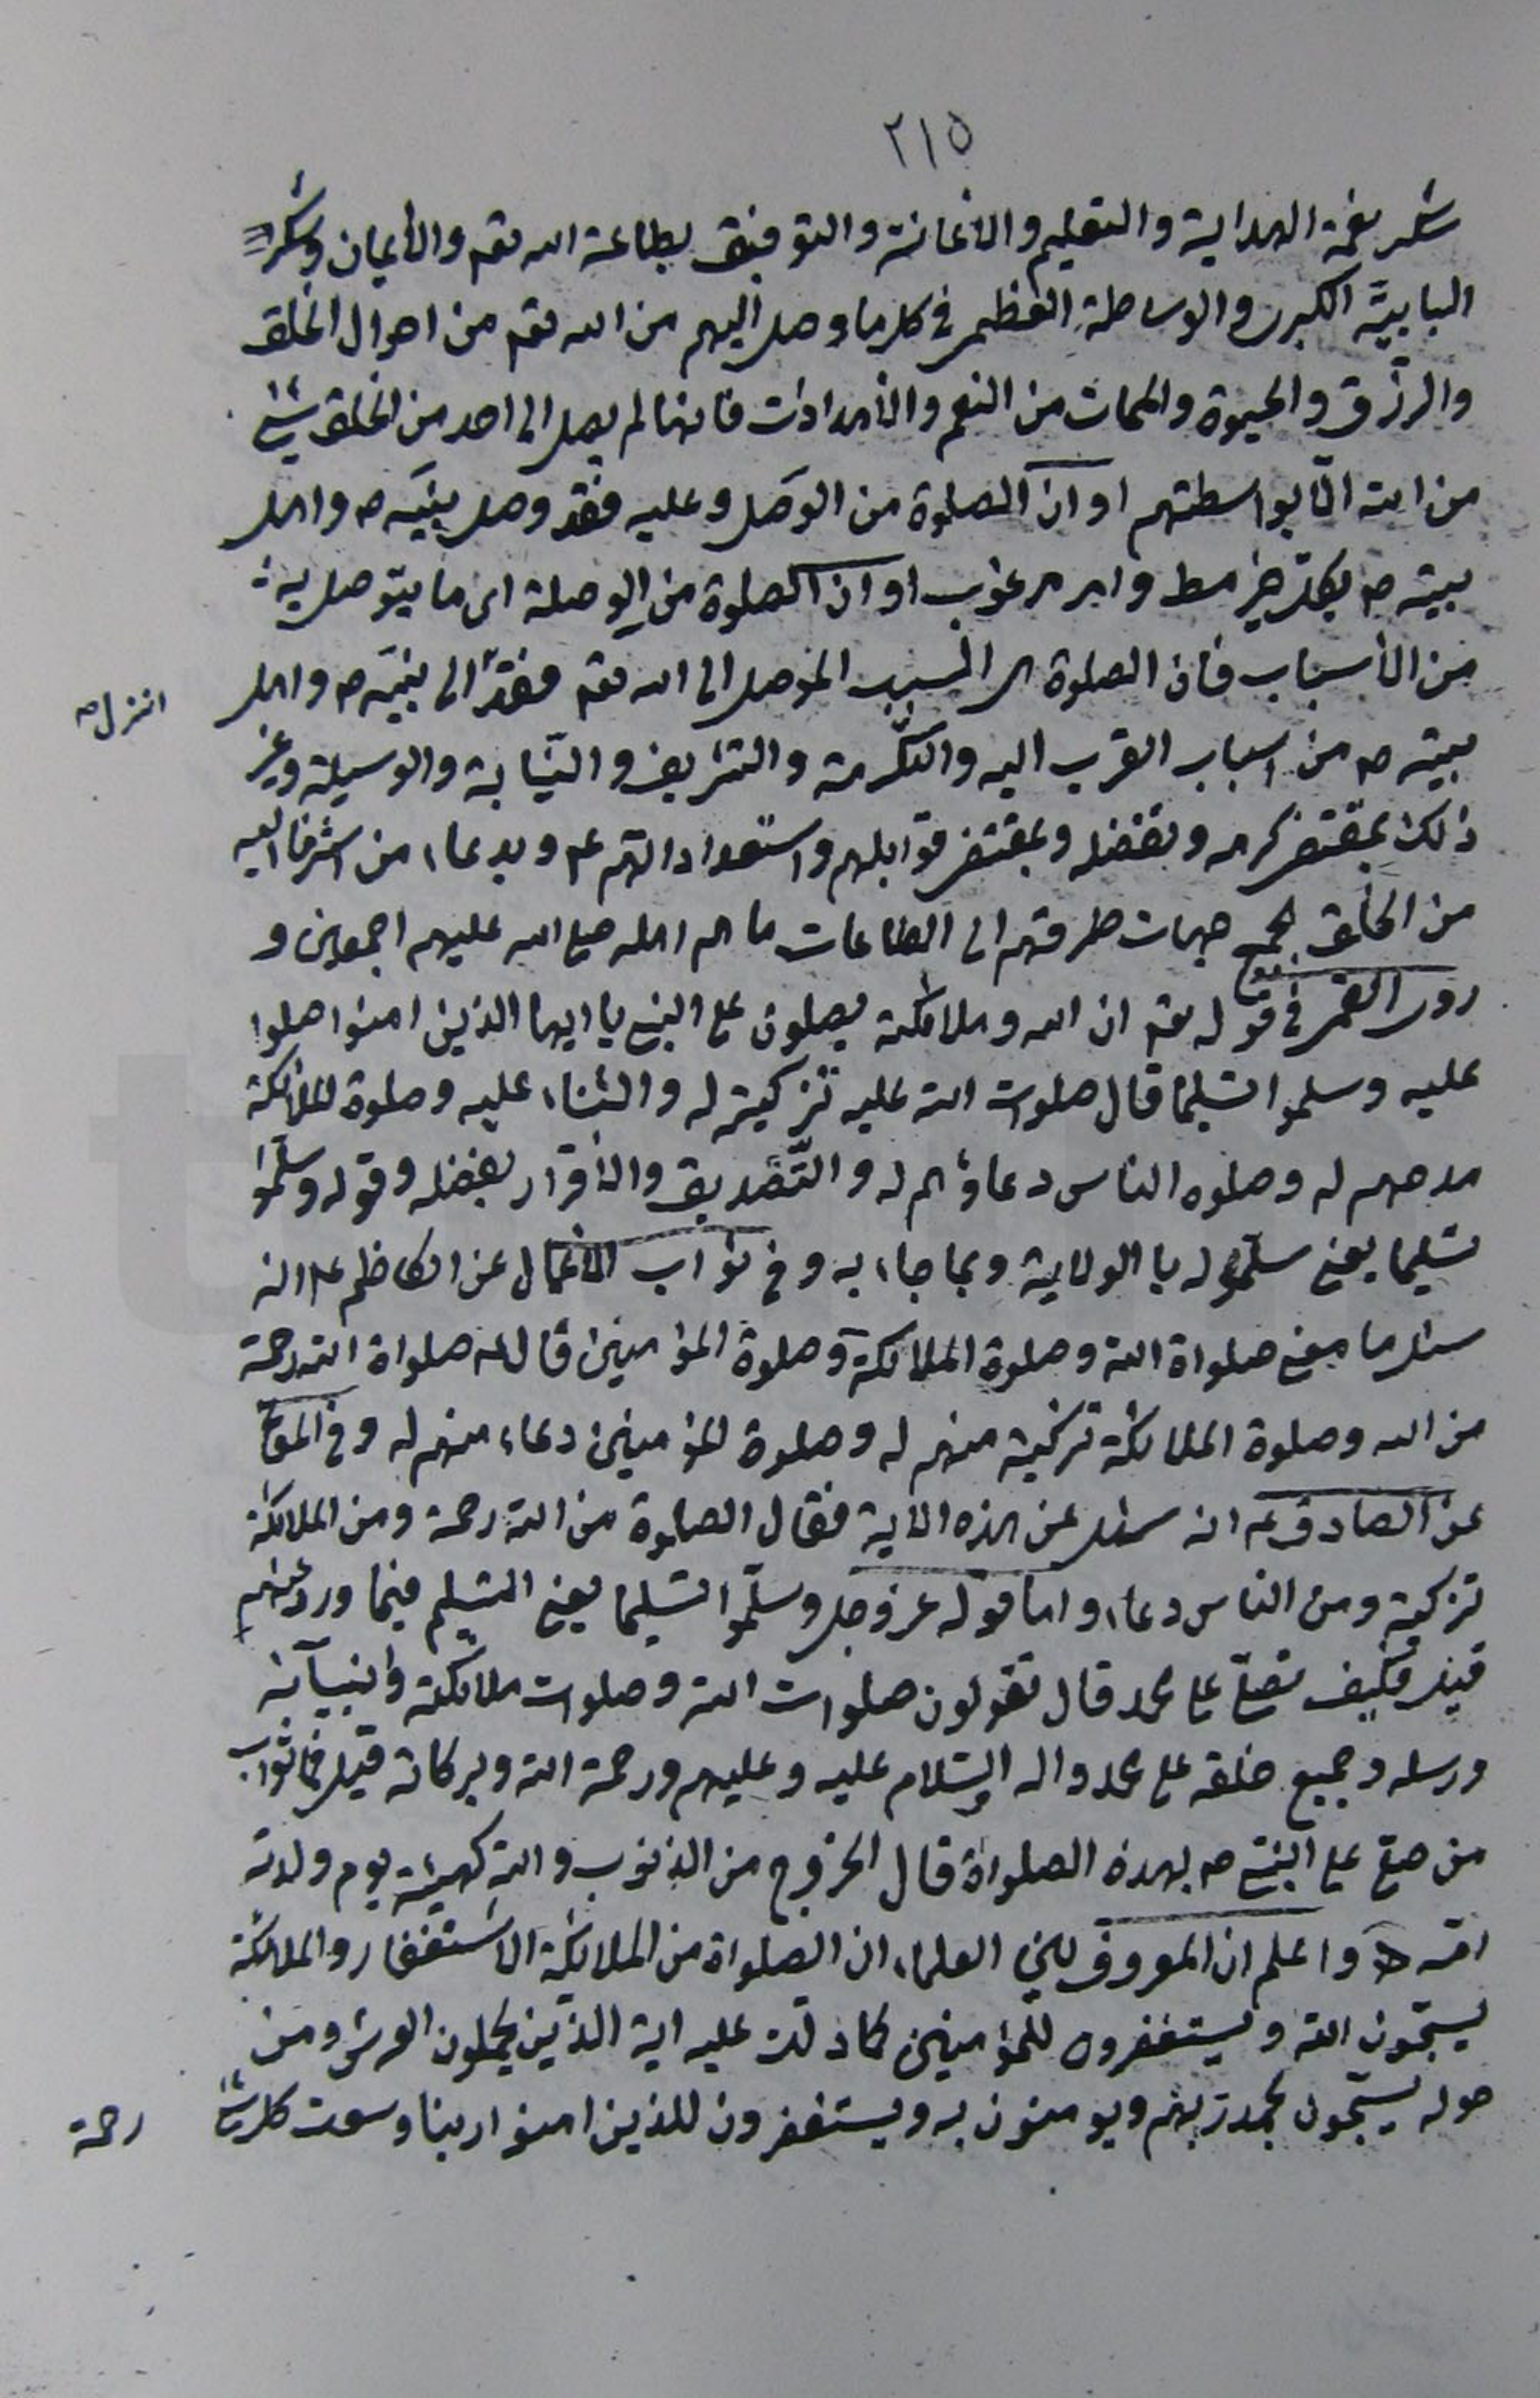 ٢١٥
شكر نعمة الهداية والتعليم والاعانة والتوفيق بطاعة الله تعم والأيمان وشكر
البابيّة الكبرى والوساطة العظمى في كلما وصل اليهم من الله تعم من احوال الخلق
والرزق والحيوة والممات من النعم والأمدادات فانها لم يصل الى احد من الخلق شئ
من الله الّا بواسطتهم او ان الصلوة من الوصل وعليه فقد وصل بنبيّه ص واهل
بيته ص بكل خير وامر مرغوب او ان الصلوة من الوصلة اى ما يتوصل به
من الأسباب فان الصلوة هى السبب الموصل الى الله تعم فقد الى نبيّه ص واهل
انزل ص
بيته ص من اسباب القرب اليه والتكرمة والتشريف والنّيابة والوسيلة وغير
ذلك بمقتضى كرمه وتفضله وبمقتضى قوابلهم واستعداداتهم ع وبدعاء من
من الخلق بجميع جهات طرقهم الى الطاعات ما هم اهله صلى الله عليهم اجمعين و
روى القمى في قوله تعم ان الله وملائكته يصلون على النبى يا ايها الذين امنوا صلوا
عليه وسلموا تسليما قال صلوات الله عليه تزكية له والثناء عليه وصلوة الملائكة
مدحهم له وصلوه الناس دعاؤهم له والتّصديق والأقرار بفضله وقوله وسلّموا
تسليما يعنى سلّموا له با الولاية وبما جاء به وفى ثواب الأعمال عن الكاظم ع انه
سئل ما معنى صلواة الله وصلوة الملائكة وصلوة المؤمنين قال له صلواة الله رحمة
من الله وصلوة الملائكة تزكية منهم له وصلوة المؤمنين دعاء منهم له وفى المعا
عن الصادق ع انه سئل عن هذه الاية فقال الصلوة من الله رحمة ومن الملائكة
تزكية ومن الناس دعاء واما قوله عز وجل وسلّموا تسليما يعنى التسليم فيما ورد عنهم
قيل فكيف نصلّى على محمد قال تقولون صلوات الله وصلوات ملائكته وانبيآئه
ورسله وجميع خلقه على محمد واله والسّلام عليه وعليهم ورحمة الله وبركاته قيل فما ثواب
من صلى على النبىّ ص بهذه الصلواة قال الخروج من الذنوب والله كهيئته يوم ولدته
امّه واعلم ان المعروف بين العلماء ان الصلواة من الملائكة الأستغفار والملائكة
يسبّحون الله ويستغفرون للمؤمنين كما دلت عليه اية الذين يحملون العرش ومن
حوله يسبّحون بحمد ربهم ويومنون به ويستغفرون للذين امنوا ربنا وسعت كل شئ
رحمة